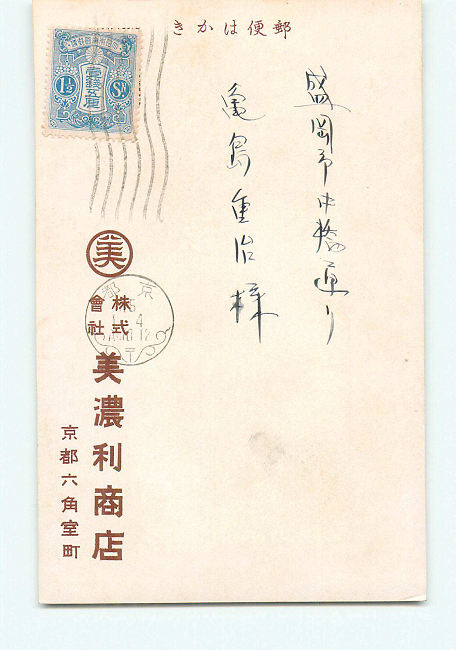 郵便はかき
盛岡市中橋通り
亀島重治様
大日本帝國郵便
壹銭五厘
1½ Sn
美
京都
4
株式會社
美濃利商店
京都六角室町